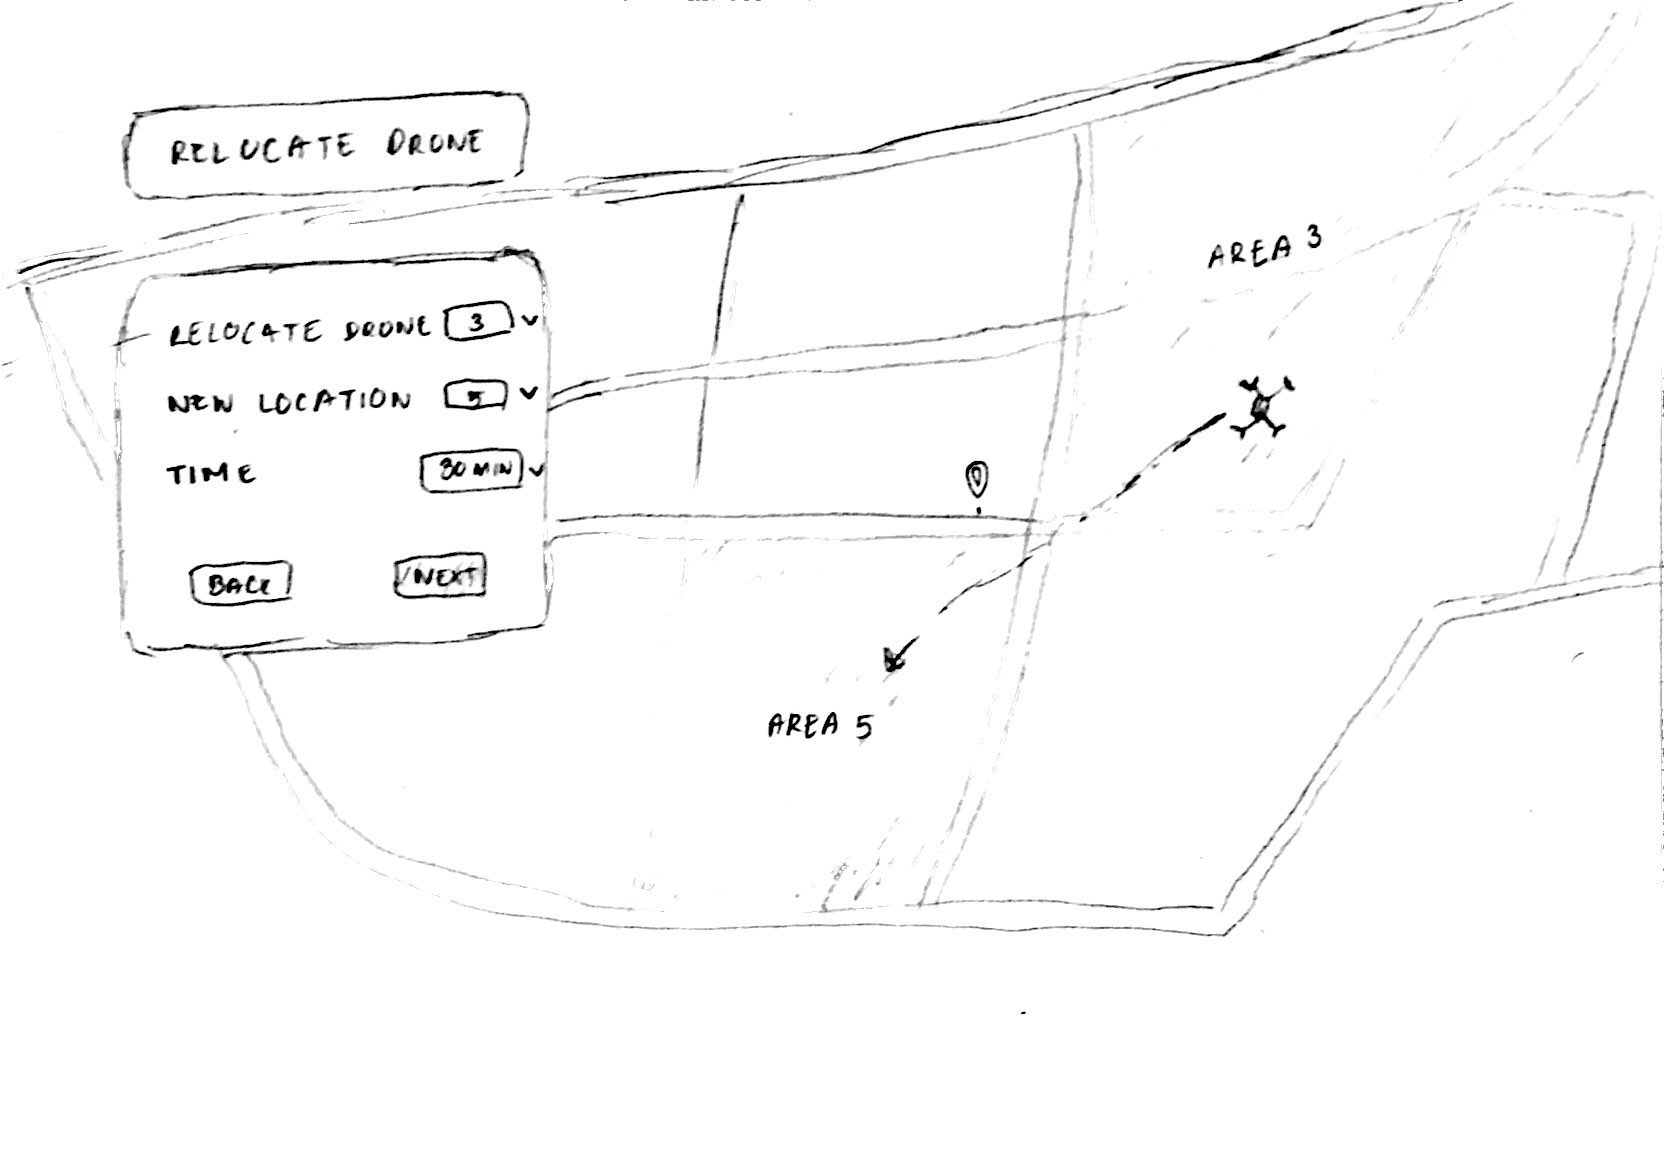 RELOCATE DRONE
RELOCATE DRONE 3
NEW LOCATION 5
TIME 30 MIN
BACK NEXT
AREA 3
AREA 5